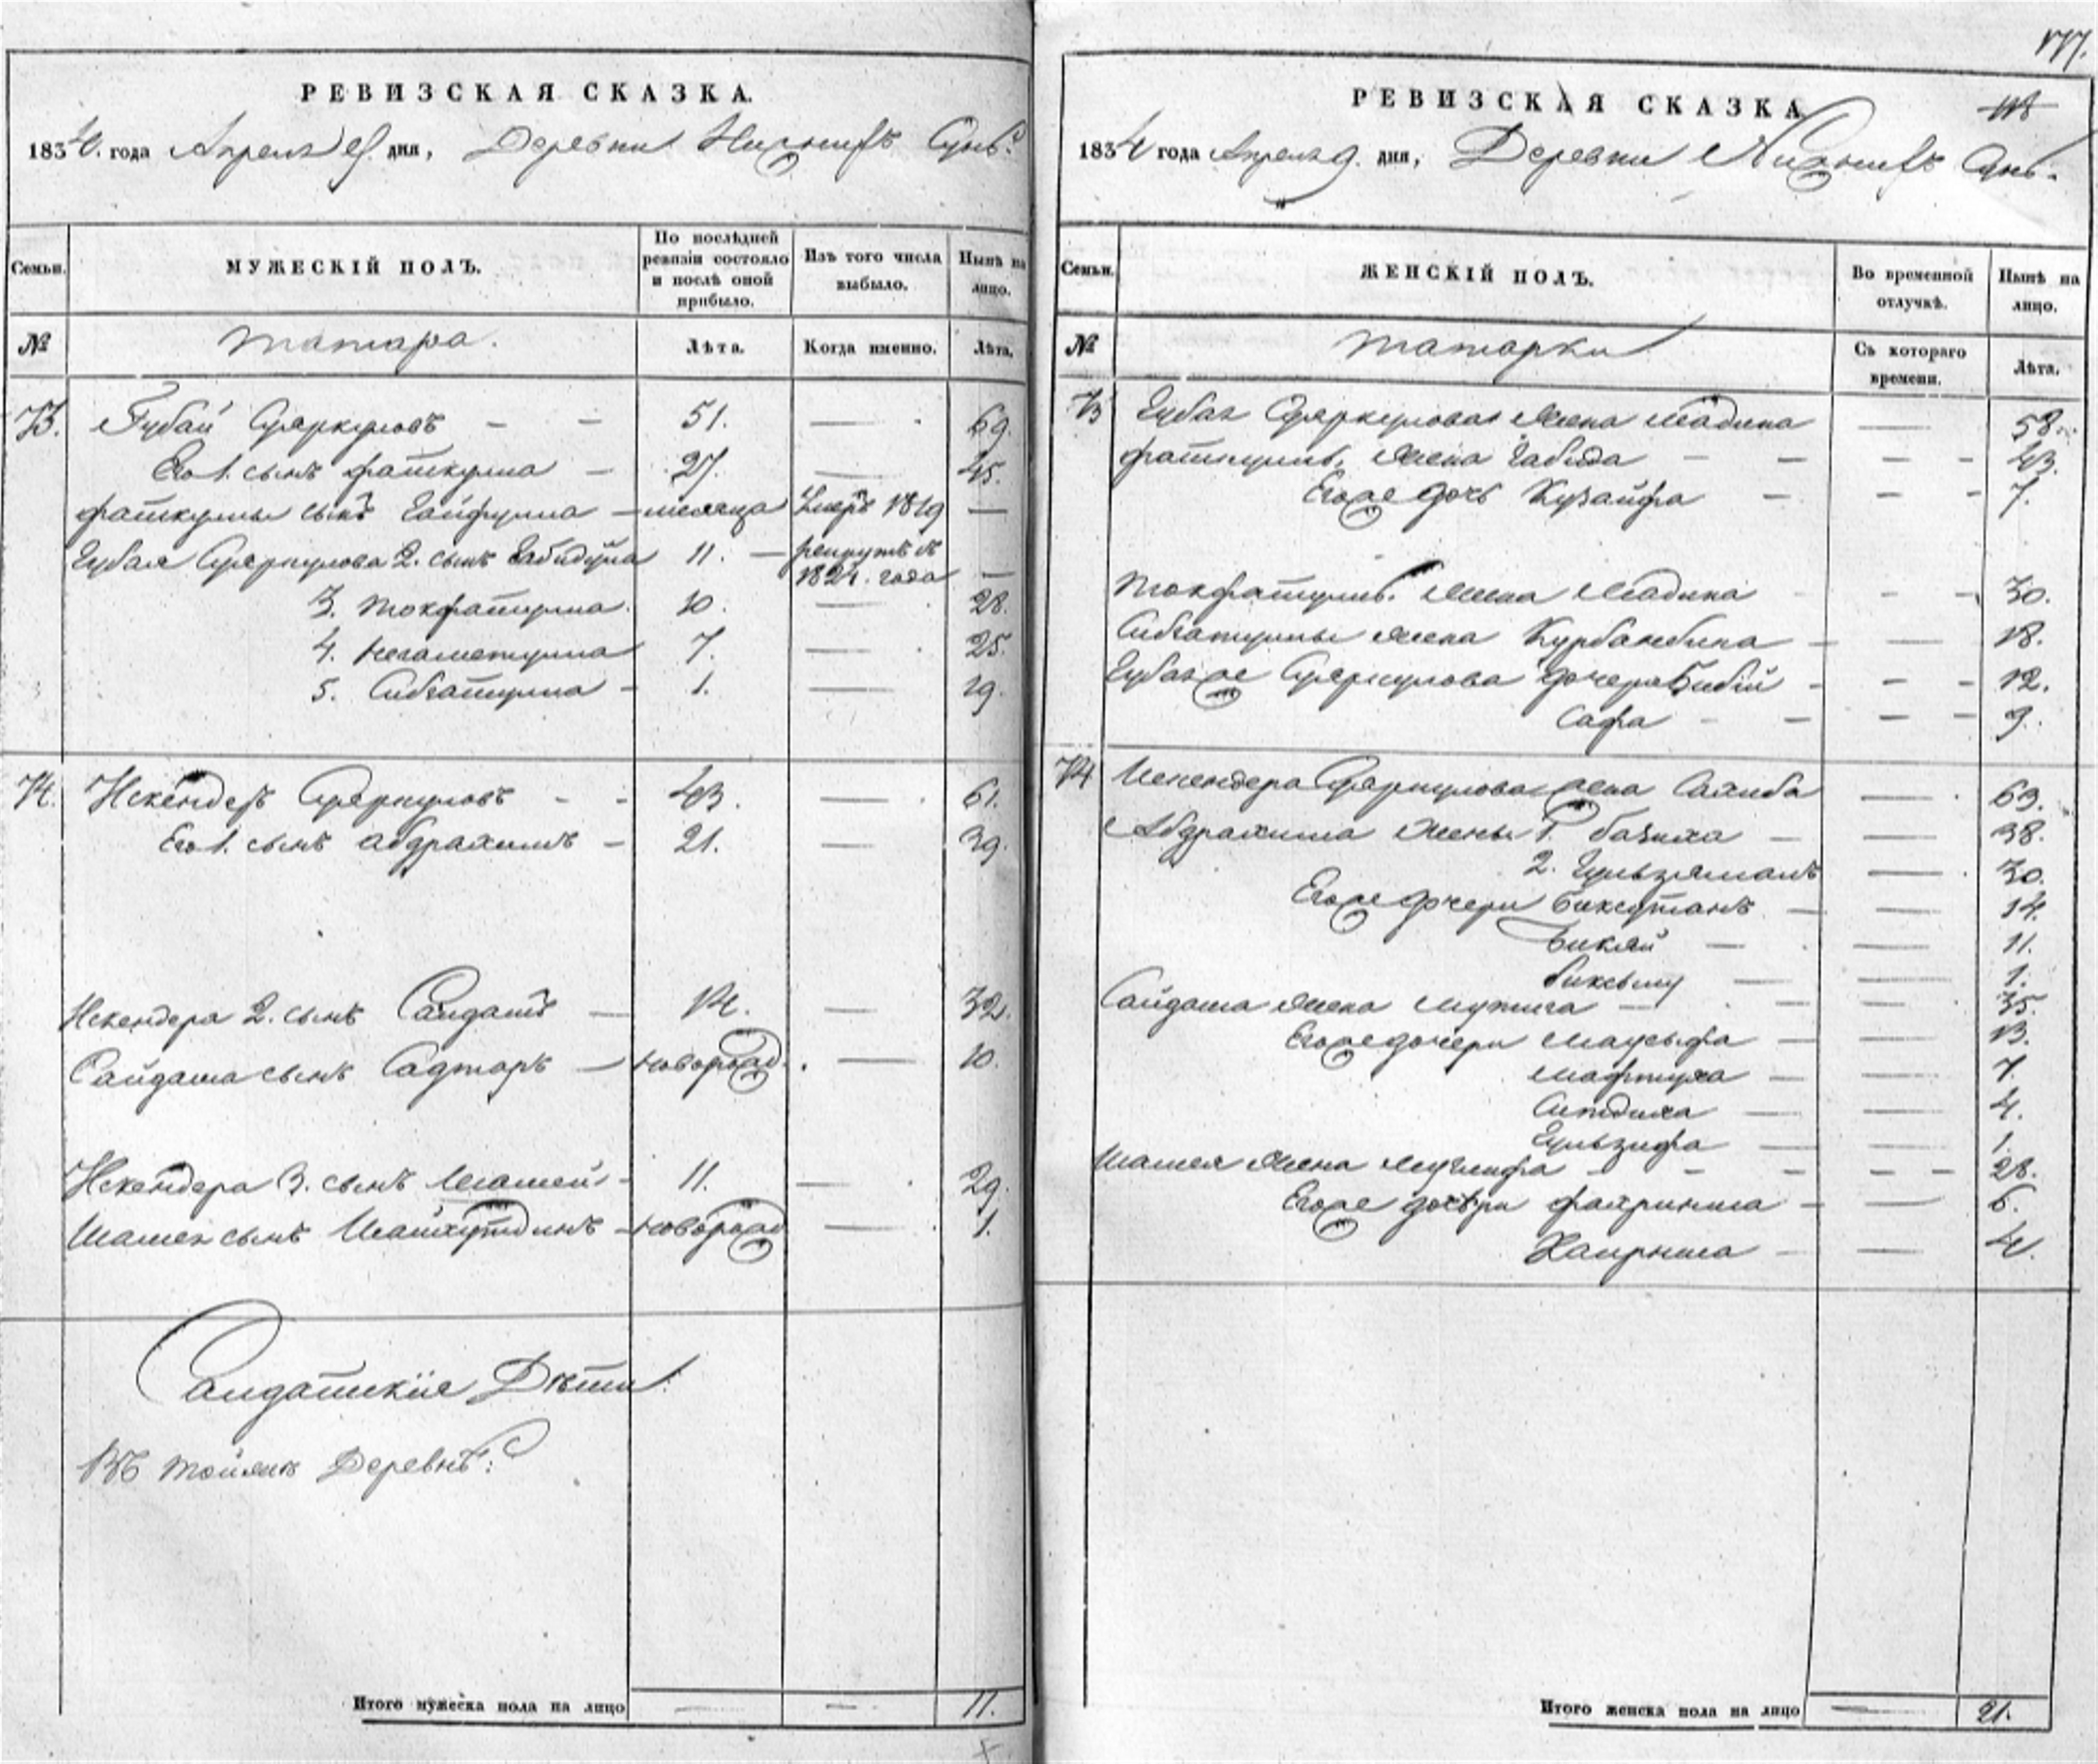 РЕВИЗСКАЯ СКАЗКА.
1834. года Апреля 9. дня, Деревни
Семьи.
МУЖЕСКІЙ ПОЛЪ.
По послѣдней ревизіи состояло и послѣ оной прибыло.
Изъ того числа выбыло.
Нынѣ на лицо.
№
татара.
Лѣта.
Когда именно.
Лѣта.
73. Губай Суяркуловъ 51. 69.
Его 1. сынъ фаткулла 27. 45.
фаткуллы сынъ Гайфулла 1819
Губая Суяркулова 2. сынъ Габидулла 11. рекрутъ 1824. года
3. Токфатулла 10. 28.
4. Негаметулла 7. 25.
5. Сибгатулла 1. 19.
74. Искендеръ Суяркуловъ 43. 61.
Его 1. сынъ абдрахимъ 21. 39.
Искендера 2. сынъ Сайдашъ 14. 32.
Сайдаша сынъ Садтаръ новорожд. 10.
Искендера 3. сынъ Шамей 11. 29.
Шамея сынъ Шайхутдинъ новорожд 1.
Салдатскіе Дѣти.
Въ тойже Деревнѣ:
Итого мужеска пола на лицо 11.
177.
118
РЕВИЗСКАЯ СКАЗКА
1834 года Апреля 9. дня, Деревни
Семьи.
ЖЕНСКІЙ ПОЛЪ.
Во временной отлучкѣ.
Нынѣ на лицо.
№
татарки
Съ котораго времени.
Лѣта.
73 Губая Суяркулова жена Мадина 58.
фаткуллы жена Габида 43.
Егоже дочь Кузайфа 7.
Токфатуллы жена Мадина 30.
Сибгатуллы жена Курбанбика 18.
Губая же Суяркулова дочери Бибій 12.
Сафа 9.
74 Искендера Суяркулова жена Салиба 63.
Абдрахима жены 1. базиха 38.
2. Гульзямалъ 30.
Егоже дочери биксултанъ 14.
Бикяй 11.
1.
Сайдаша жена 35.
Егоже дочери 13.
Мафтуха 7.
Ситдиха 4.
Гульзифа 1.
Шамея жена 28.
Егоже дочери 6.
4.
Итого женска пола на лицо 21.